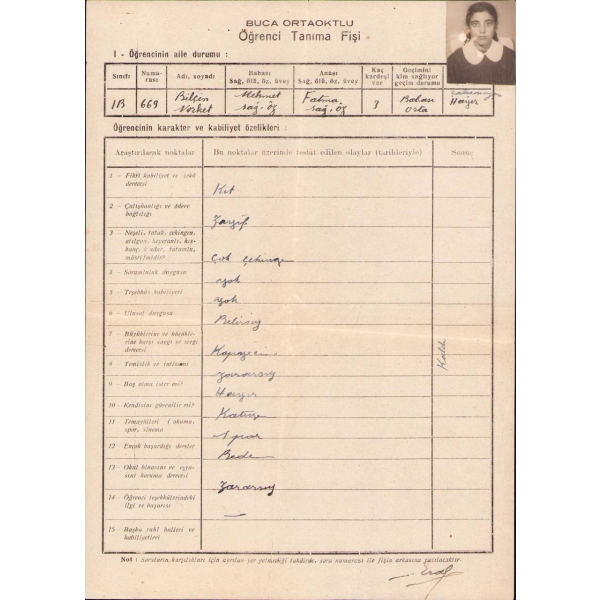 BUCA ORTAOKTLU
Öğrenci Tanıma Fişi
I - Öğrencinin aile durumu :
Sınıfı Numarası Adı, soyadı Babası Sağ, ölü, öz, üvey Anası Sağ, ölü, öz, üvey Kaç kardeşi var Geçimini kim sağlıyor geçim durumu
1B 669 Mehmet sağ, öz Fatma sağ, öz 3 Babası orta
Hayır
Öğrencinin karakter ve kabiliyet özelikleri :
Araştırılacak noktalar Bu noktalar üzerinde tesbit edilen olaylar (tarihleriyle) Sonuç
1 - Fikrî kabiliyet ve zekâ
derecesi
Kıt
2 - Çalışkanlığı ve ödeve
bağlılığı
Zayıf
3 - Neşeli, tutuk, çekingen,
atılgan, heyecanlı, kıs-
kanç, tutumlu,
müsrifmidir?
Çok çekingen
4 - Sorumluluk duygusu
yok
5 - Teşebbüs kabiliyeti
yok
6 - Ulusal duygusu
Belirsiz
7 - Büyüklerine ve küçükle-
rine karşı saygı ve sevgi
derecesi
8 - Temizlik ve intizamı
zararsız
9 - Baş olma ister mi?
Hayır
10 - Kendisine güvenilir mi?
11 - Temayülleri ( okuma,
spor, sinema
Spor
12 - Ençok başardığı dersler
Beden
13 - Okul binasını ve eşya-
sını koruma derecesi
Zararsız
14 - Öğrenci teşekküllerindeki
ilgi ve başarısı
—
15 - Başka ruhî halleri ve
kabiliyetleri
Kaldı
Not : Soruların karşılıkları için ayrılan yer yetmediği takdirde, soru numarası ile fişin arkasına yazılacaktır.